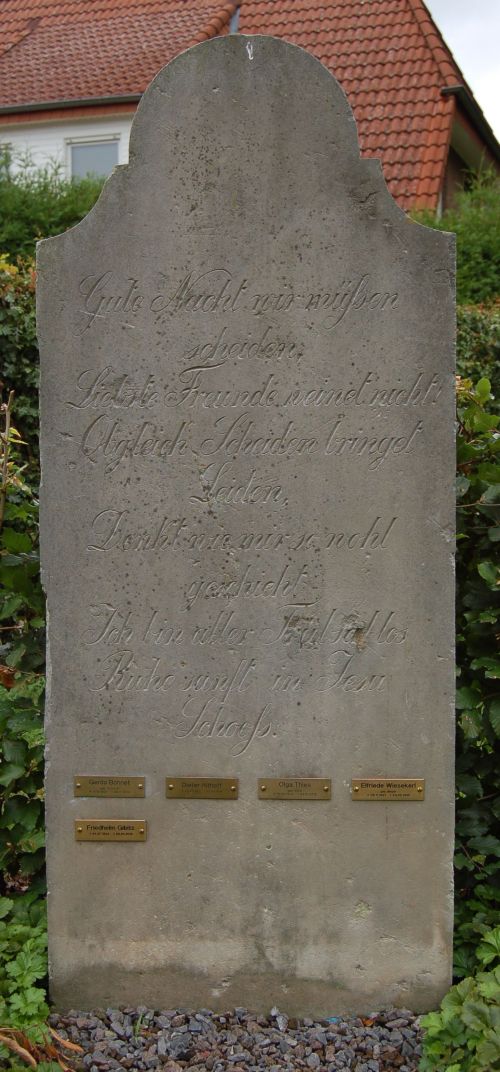 Gute Nacht wir müßen
scheiden,
Liebste Freunde weinet nicht
Obgleich Scheiden bringet
Leiden,
Denkt wie mir so wohl
geschieht
Ich bin aller
Ruhe sanft in Jesu
Schooß.
Gerda Bonnet
Dieter Althoff
Olga Thies
Elfriede Wiesekerl
Friedhelm Gibitz